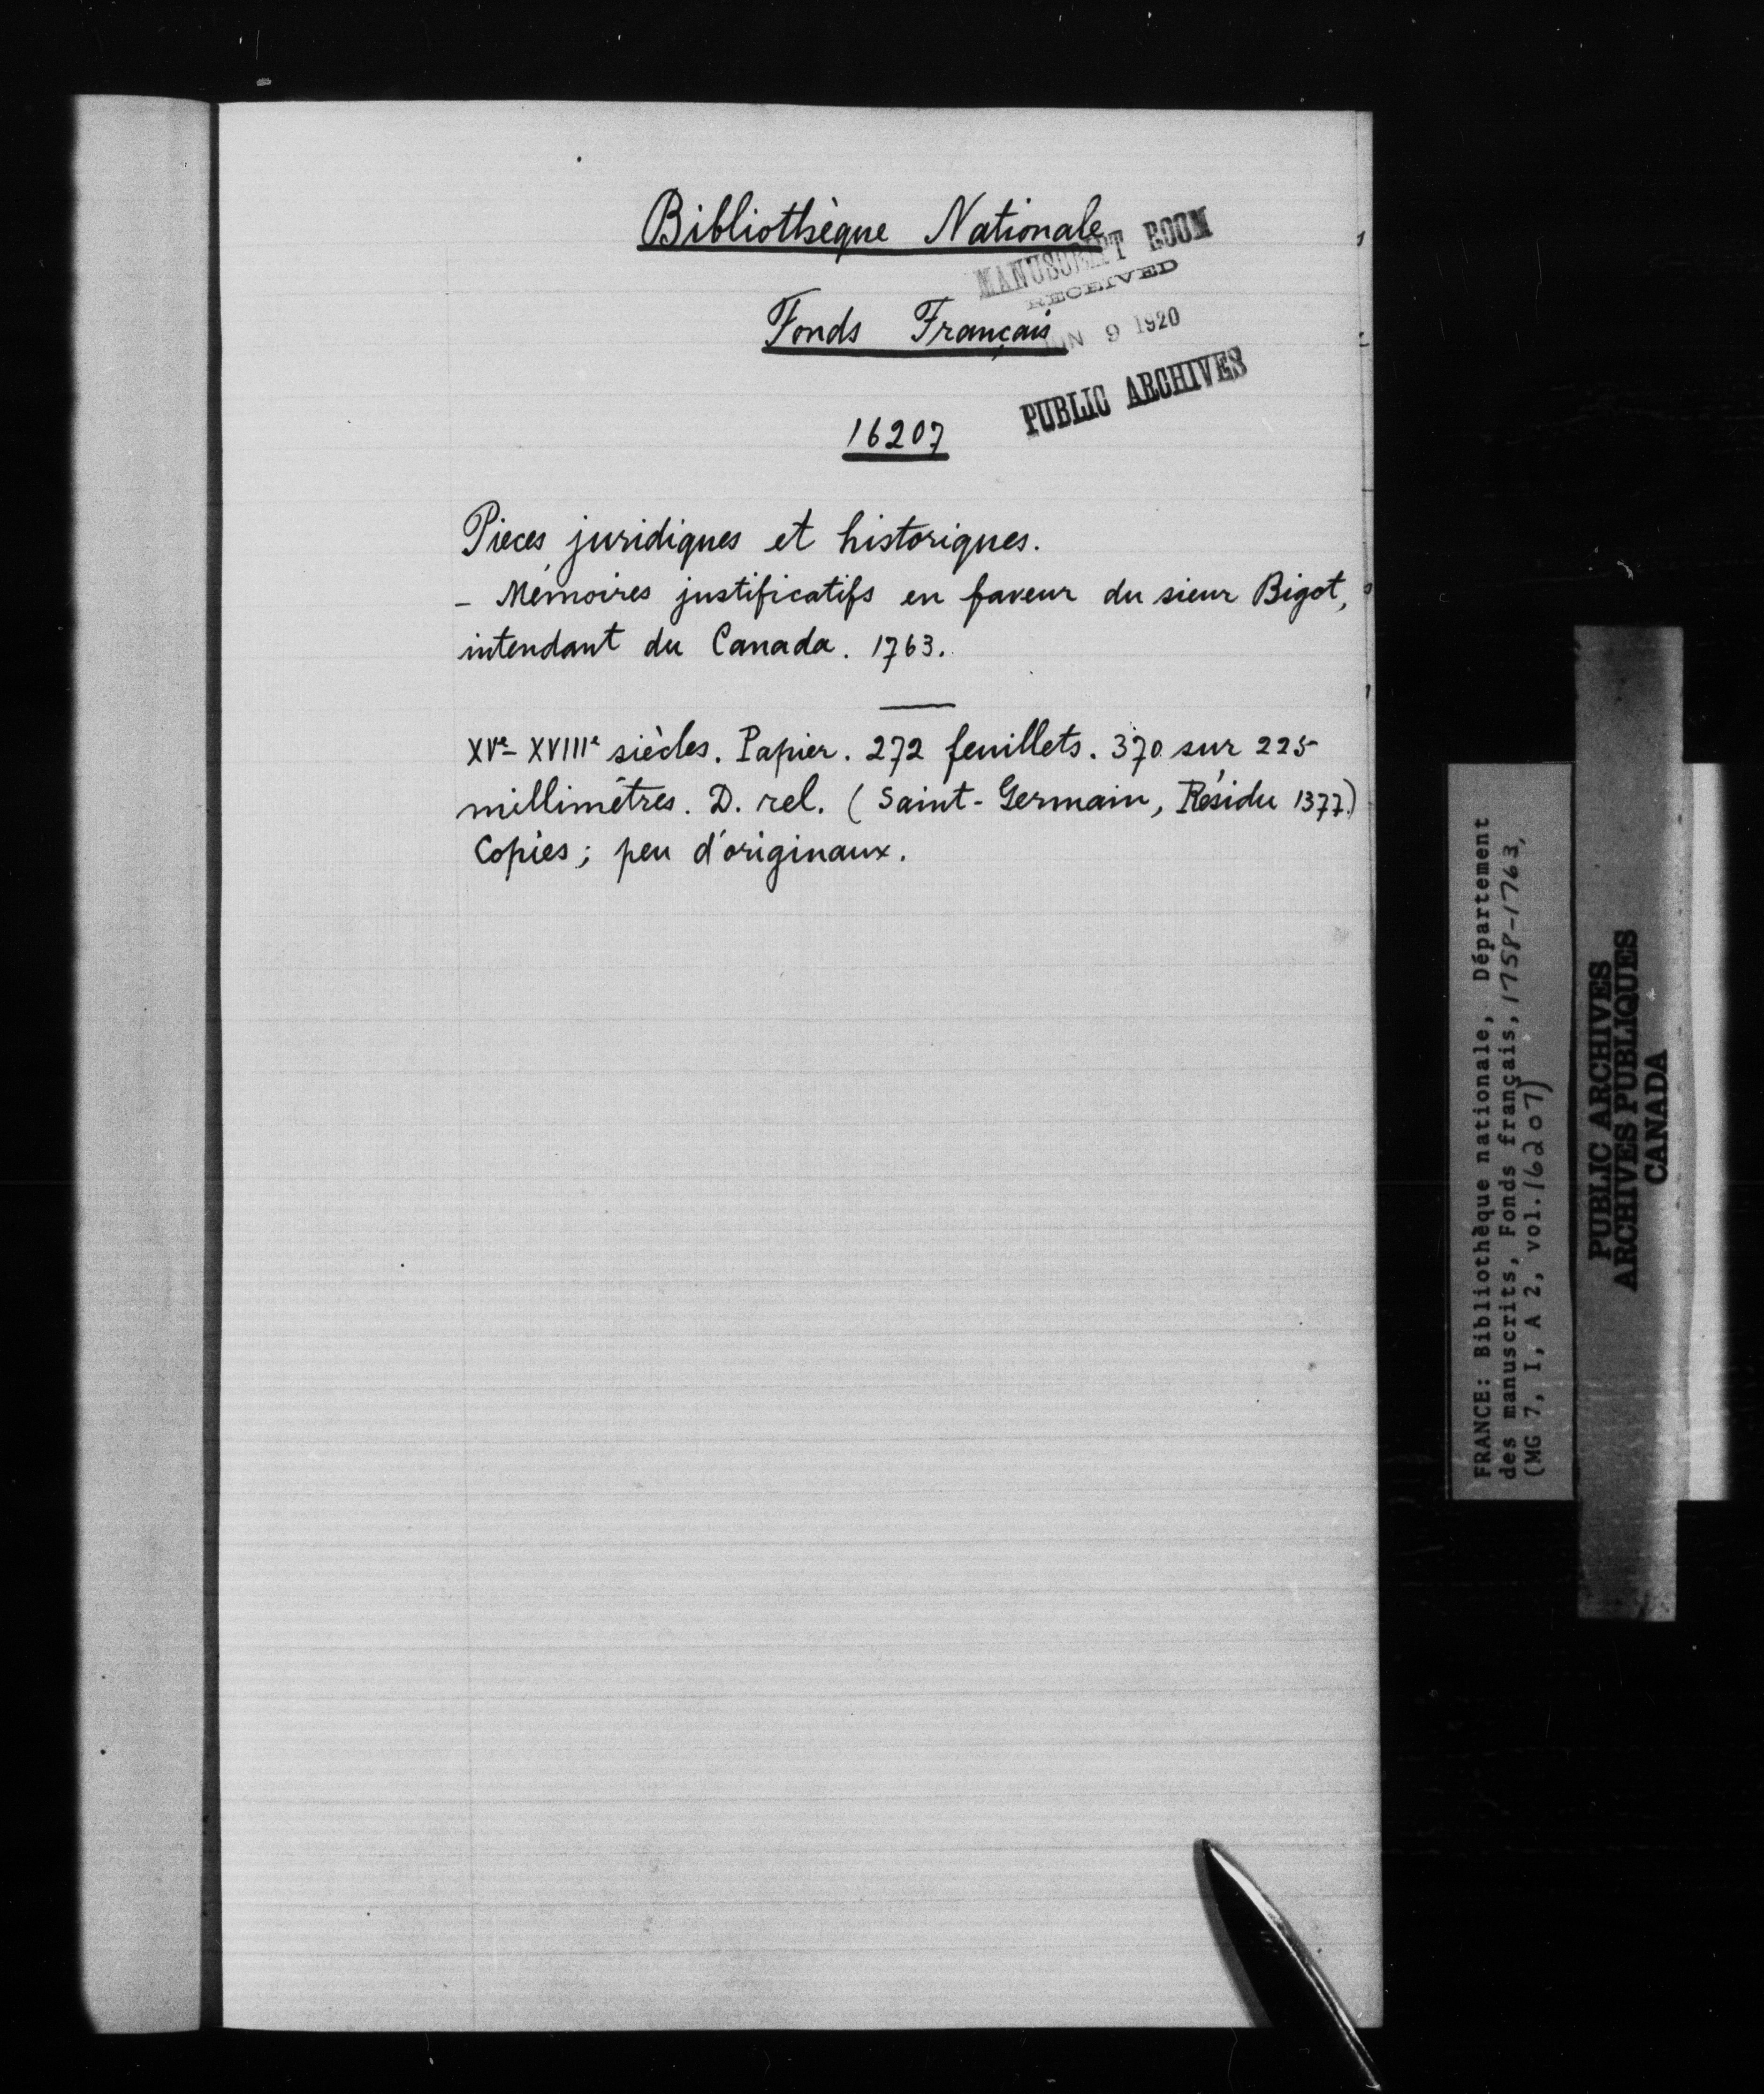 Bibliothèque Nationale
MANUSCRIPT ROOM
RECEIVED
Fonds Français
JUN 9 1920
PUBLIC ARCHIVES
16207
Pieces juridiques et historiques.
- Mémoires justificatifs en faveur du sieur Bigot,
intendant du Canada. 1763.
XVe-XVIIIe siècles. Papier. 272 feuillets. 370 sur 225
millimètres. D. rel. (Saint-Germain, Résidu 1377.)
Copies; peu d'originaux.
FRANCE: Bibliothèque nationale, Département
des manuscrits, Fonds français, 1758-1763,
(MG 7, I, A 2, vol. 16207)
PUBLIC ARCHIVES
ARCHIVES PUBLIQUES
CANADA